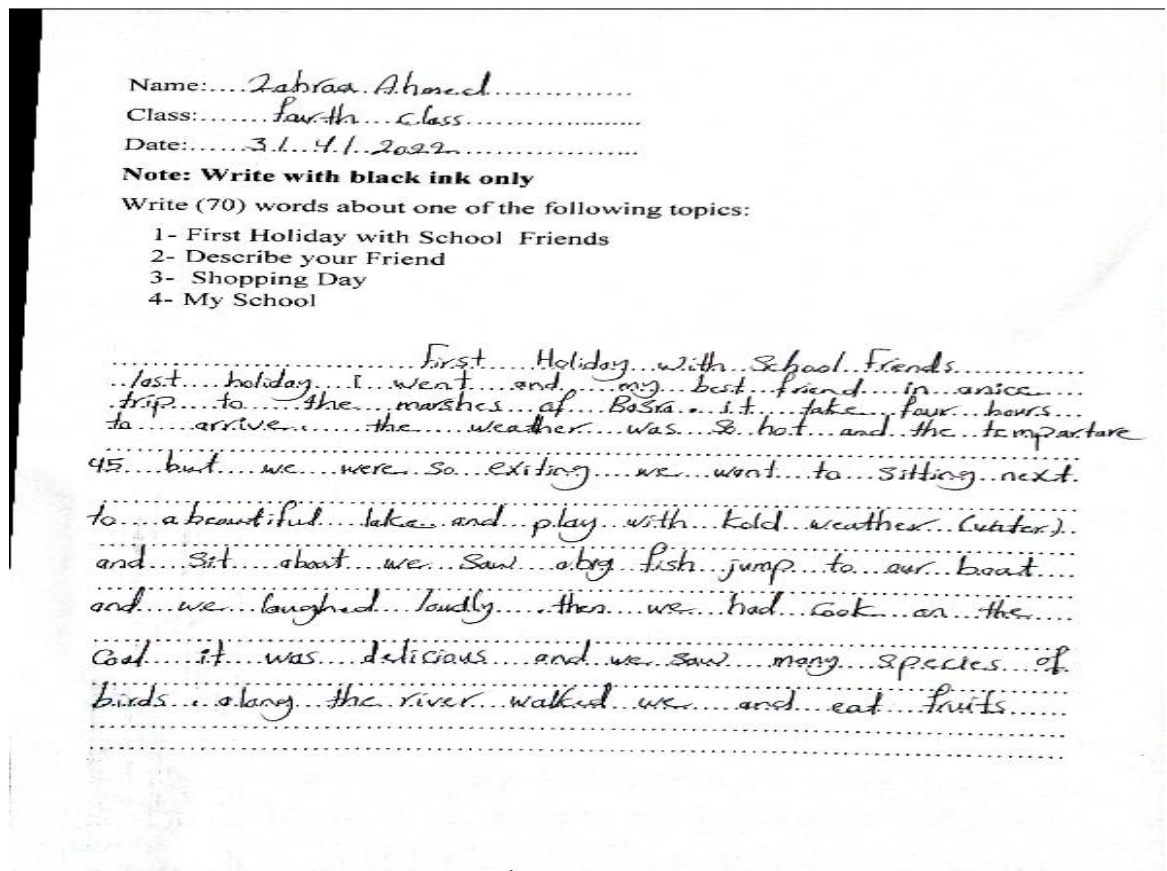 Name:....Zahraa Ahmed...............
Class:.......fourth class.....................
Date:......3/ 4/ 2022.....................
Note: Write with black ink only
Write (70) words about one of the following topics:
1- First Holiday with School Friends
2- Describe your Friend
3- Shopping Day
4- My School
First Holiday with School Friends
last holiday i went and my best friend in anice
trip to the marshes of Basra. it take four hours
to arrive. the weather was so hot and the tempartare
45 but we were so exiting we want to sitting next
to abeautiful lake and play with kold weather (water)
and sit aboat we saw abig fish jump to our boat
and we laughed loudly. then we had cook on the
Coal it was delicious and we saw many species of
birds. along the river walked we and eat fruits